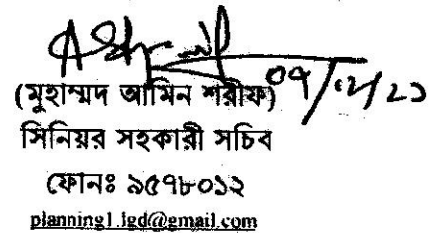 ০৭/১২/২১
(মুহাম্মদ আমিন শরীফ)
সিনিয়র সহকারী সচিব
ফোনঃ ৯৫৭৮০১২
planning1.lgd@gmail.com